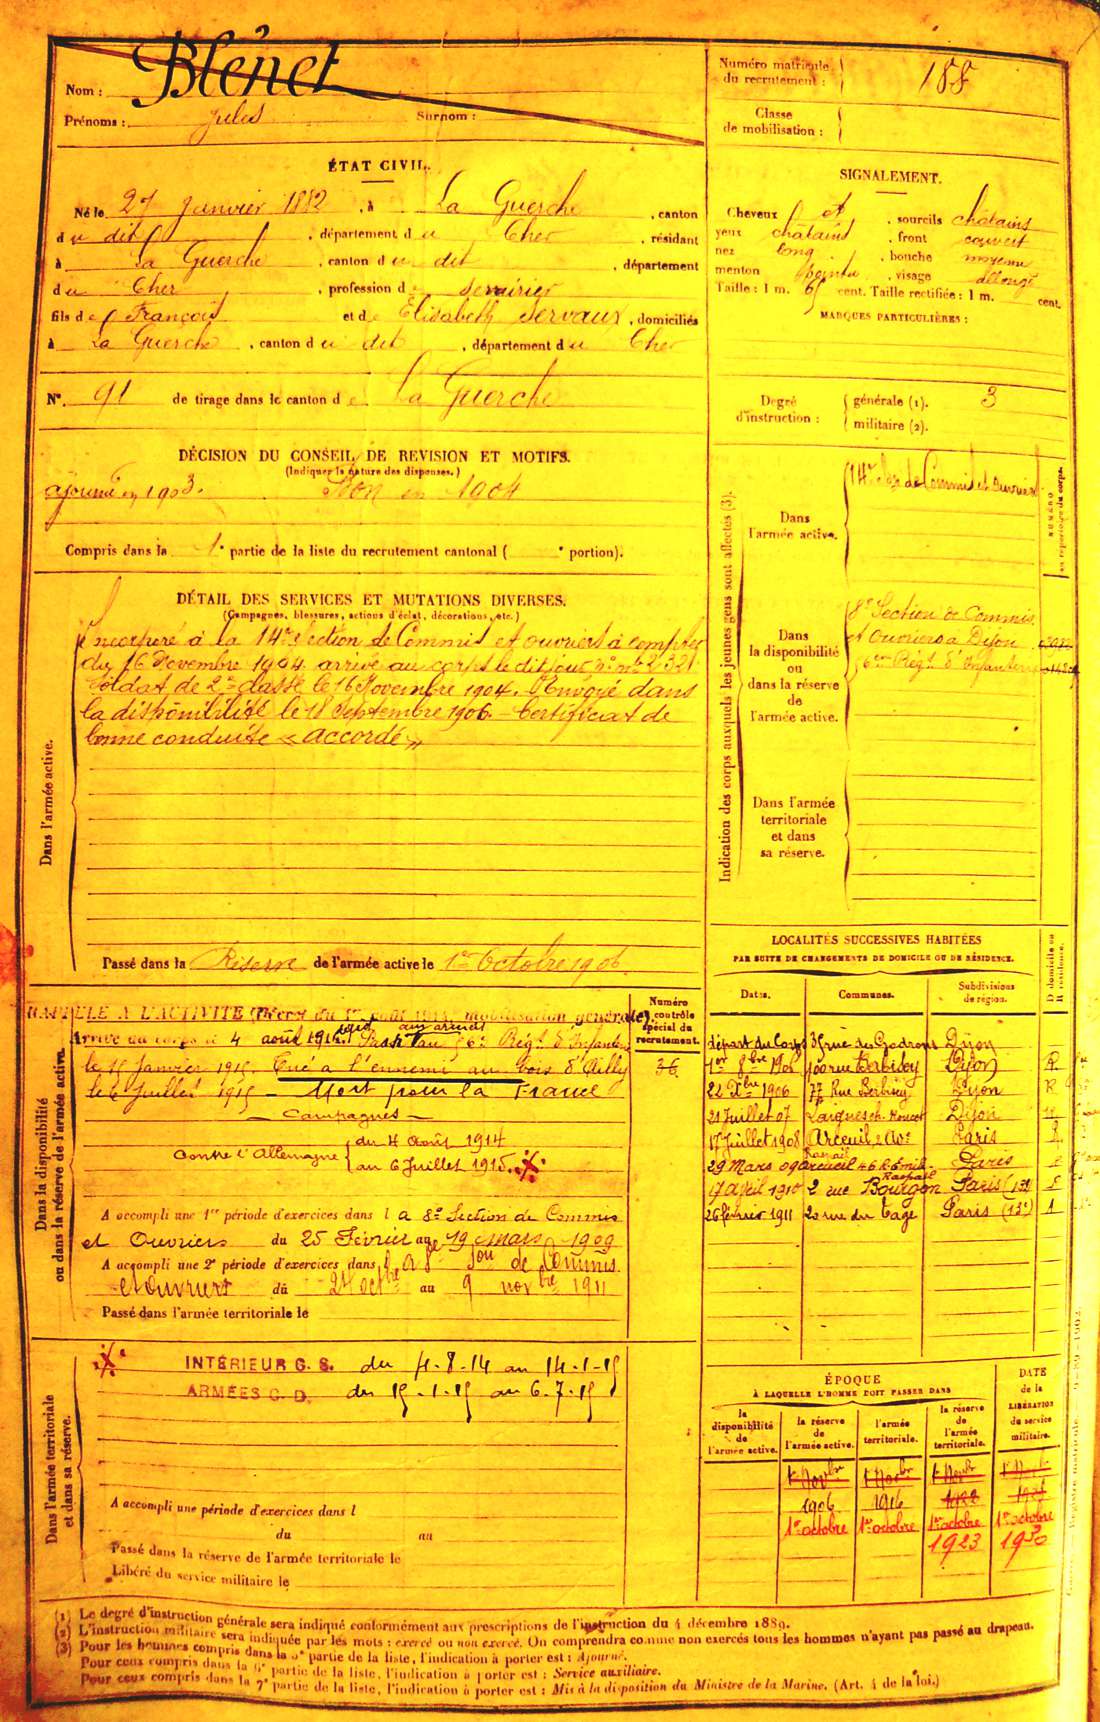 Nom : Blénet
Prénoms : Jules Surnom :
ÉTAT CIVIL.
Né le 27 Janvier 1882, à La Guerche, canton
du dit, département du Cher, résidant
à La Guerche, canton du dit, département
du Cher, profession de serrurier
fils de François et de Elisabeth Servaux, domiciliés
à La Guerche, canton du dit, département du Cher
N°. 91 de tirage dans le canton de La Guerche
DÉCISION DU CONSEIL DE REVISION ET MOTIFS.
(Indiquer la nature des dispenses.)
ajourné en 1903. Bon en 1904
Compris dans la 1e partie de la liste du recrutement cantonal ( e portion).
DÉTAIL DES SERVICES ET MUTATIONS DIVERSES.
(Campagnes, blessures, actions d'éclat, décorations, etc.)
Dans l'armée active.
Incorporé à la 14e Section de Commis et ouvriers à compter
du 16 Novembre 1904, arrivé au corps le dit jour, n° mle 2321
Soldat de 2e classe le 16 Novembre 1904. Envoyé dans
la disponibilité le 18 Septembre 1906 - Certificat de
bonne conduite « accordé »
Passé dans la Réserve de l'armée active le 1er Octobre 1906
Dans la disponibilité
ou dans la réserve de l'armée active.
RAPPELÉ A L'ACTIVITÉ (Décret du 1er août 1914, mobilisation générale).
Arrivé au corps le 4 août 1914. Passé au 56e Régt d'Infanterie
aux armées
le 15 Janvier 1915 Tué à l'ennemi au bois d'Ailly
le 6 Juillet 1915 - Mort pour la France
- Campagnes -
Contre l'Allemagne { du 4 Août 1914
au 6 Juillet 1915.
A accompli une 1re période d'exercices dans la 8e Section de Commis
et Ouvriers du 25 Février au 19 mars 1909
A accompli une 2e période d'exercices dans la 8e Son de Commis
et ouvriers du 2 octbre au 9 novbre 1911
Passé dans l'armée territoriale le
Numéro
contrôle
spécial du
recrutement.
36
Dans l'armée territoriale
et dans sa réserve.
INTÉRIEUR C. S. du 4-8-14 au 14-1-15
ARMÉES C. D. du 15-1-15 au 6-7-15
A accompli une période d'exercices dans l
du au
Passé dans la réserve de l'armée territoriale le
Libéré du service militaire le
Numéro matricule
du recrutement : 188
Classe
de mobilisation :
SIGNALEMENT.
Cheveux et, sourcils châtains
yeux châtains, front couvert
nez long, bouche moyenne
menton pointu, visage allongé
Taille : 1 m. 65 cent. Taille rectifiée : 1 m. cent.
MARQUES PARTICULIÈRES :
Degré
d'instruction :
générale (1). 3
militaire (2).
Indication des corps auxquels les jeunes gens sont affectés (3).
NUMÉRO
au répertoire du corps.
Dans
l'armée active.
14e Son de Commis et ouvriers
Dans
la disponibilité
ou
dans la réserve
de
l'armée active.
8e Section de Commis
et Ouvriers à Dijon
56eme Régt d'Infanterie
Dans l'armée
territoriale
et dans
sa réserve.
LOCALITÉS SUCCESSIVES HABITÉES
PAR SUITE DE CHANGEMENTS DE DOMICILE OU DE RÉSIDENCE.
Dates. Communes. Subdivisions
de région.
D domicile ou
R résidence.
départ du Corps 35 rue des Godrans Dijon
1er 8bre 1906 100 rue Berbisey Dijon R
22 Xbre 1906 77 Rue Berbisey Dijon R
21 Juillet 07 Dijon
17 Juillet 1908 Arcueil Paris R
29 Mars 09 arcueil 46 R. Emile Raspail Paris
17 avril 1910 2 rue Bourgon Paris (13e)
26 février 1911 20 rue du Tage Paris (13e)
ÉPOQUE
À LAQUELLE L'HOMME DOIT PASSER DANS
DATE
de la
LIBÉRATION
du service
militaire.
la
disponibilité
de
l'armée active.
la réserve
de
l'armée active.
l'armée
territoriale.
la réserve
de
l'armée
territoriale.
1er Novbre 1er Novbre 1er Novbre 1er Novbre
1906 1916 1922
1er octobre 1er octobre 1er octobre 1er octobre
1923 1930
(1) Le degré d'instruction générale sera indiqué conformément aux prescriptions de l'instruction du 4 décembre 1889.
(2) L'instruction militaire sera indiquée par les mots : exercé ou non exercé. On comprendra comme non exercés tous les hommes n'ayant pas passé au drapeau.
(3) Pour les hommes compris dans la 5e partie de la liste, l'indication à porter est : Ajourné.
Pour ceux compris dans la 6e partie de la liste, l'indication à porter est : Service auxiliaire.
Pour ceux compris dans la 7e partie de la liste, l'indication à porter est : Mis à la disposition du Ministre de la Marine. (Art. 4 de la loi.)